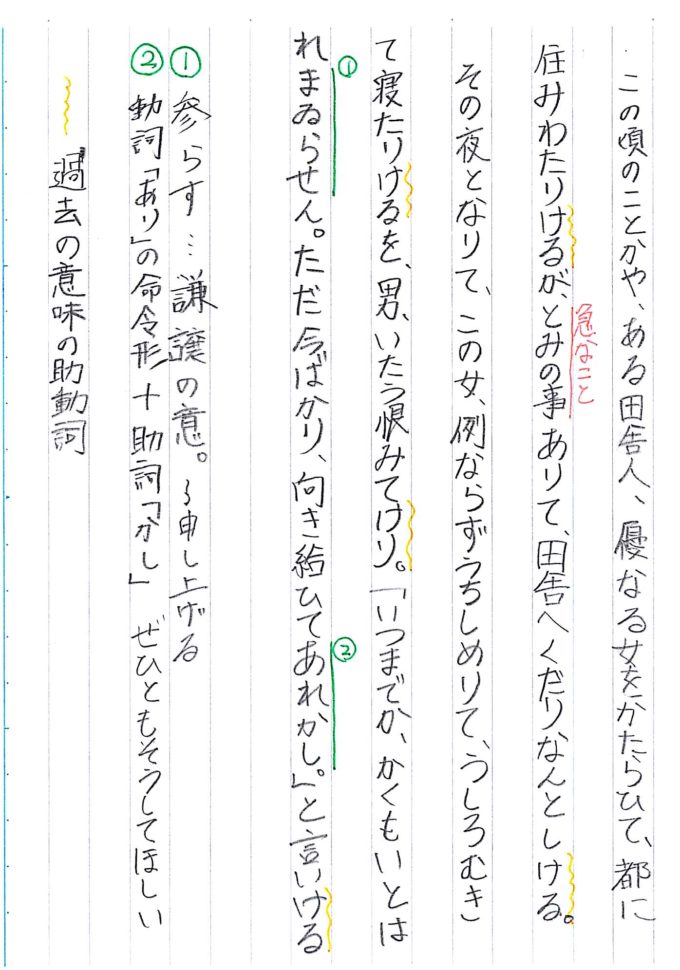 この頃のことかや、ある田舎人、優なる女をかたらひて、都に
急なこと
住みわたりけるが、とみの事ありて、田舎へくだりなんとしける。
その夜となりて、この女、例ならずうちしめりて、うしろむき
て寝たりけるを、男、いたう恨みてけり。「いつまでか、かくもいとは
① ②
れまゐらせん。ただ今ばかり、向き給ひてあれかし。」と言いける
① 参らす…謙譲の意。〜申し上げる
② 動詞「あり」の命令形+助詞「かし」 ぜひともそうしてほしい
過去の意味の助動詞